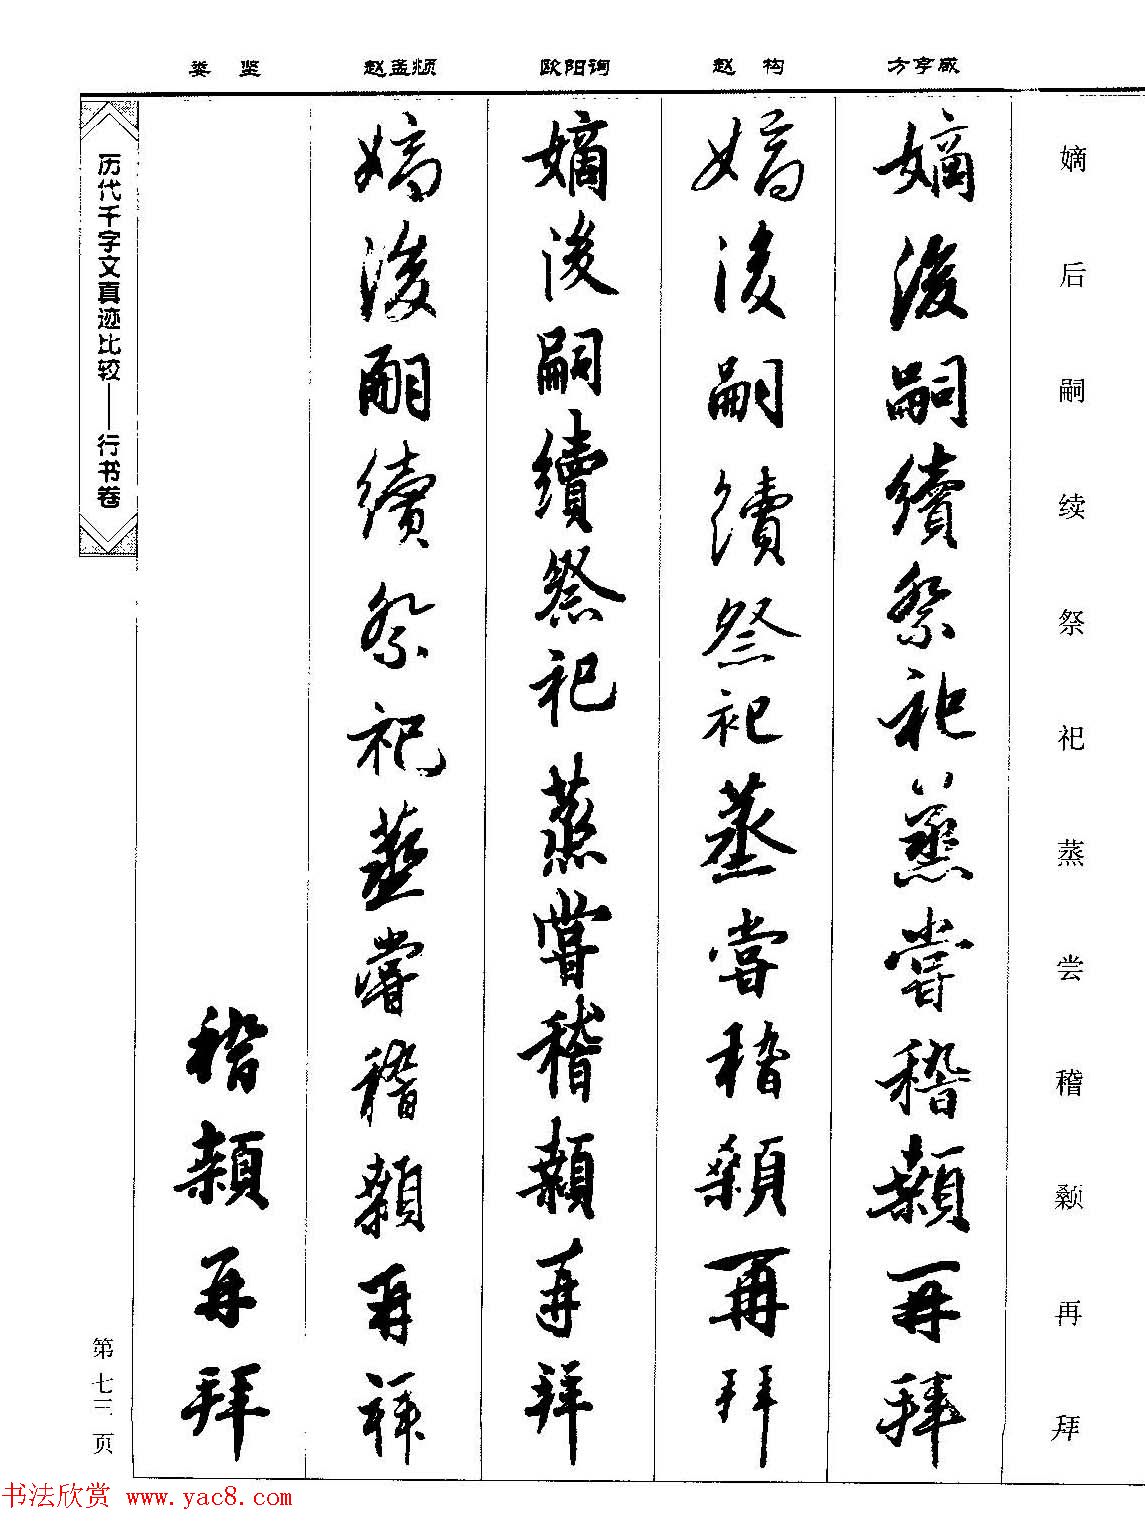 嫡后嗣续祭祀蒸尝稽颡再拜
方亨咸
嫡後嗣續祭祀蒸嘗稽顙再拜
赵构
嫡後嗣續祭祀蒸嘗稽顙再拜
欧阳询
嫡後嗣續祭祀蒸嘗稽顙再拜
赵孟頫
嫡後嗣續祭祀蒸嘗稽顙再拜
娄坚
稽顙再拜
历代千字文真迹比较——行书卷
第七三页
书法欣赏 www.yac8.com